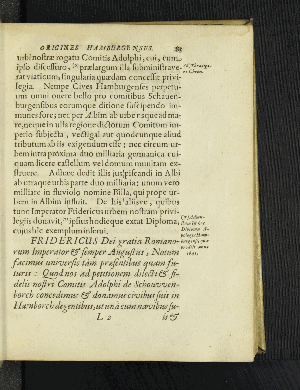 ORIGINES HAMBURGENSES. 83
urbi nostræ rogatu Comitis Adolphi, cui, cum
ipso discessuro, prælargum illa subministrave-
rat viaticum, singularia quædam concessit privi-
legia. Nempe Cives Hamburgenses perpetu-
um omni onere bello pro comitibus Schauen-
burgensibus eorumque ditione suscipiendo im-
munes fore; nec per Albim ab urbe usque ad ma-
re, neque in ulla regione dictorum Comitum im-
perio subjecta, vectigal aut quodcunque aliud
tributum ab iis exigendum esse; nec circum ur-
bem intra proxima duo milliaria germanica cui-
quam licere castellum vel domum munitam ex-
struere. Adhæc dedit illis jus piscandi in Albi
ab utraque urbis parte duo milliaria; unum vero
milliare in fluviolo nomine Billa, qui prope ur-
bem in Albim influit. De his aliisve, quibus
tunc Imperator Fridericus urbem nostram privi-
legiis donavit, ipsius hodieque extat Diploma,
cujus hic exemplum inserui.
FRIDERICUS Dei gratia Romano-
rum Imperator & semper Augustus, Notum
facimus universis tam præsentibus quam fu-
turis: Quod nos ad petitionem dilecti & fi-
delis nostri Comitis Adolphi de Schouwen-
borch concedimus & donamus civibus suis in
Hamborch degentibus, ut una cum navibus su-
L 2 is &